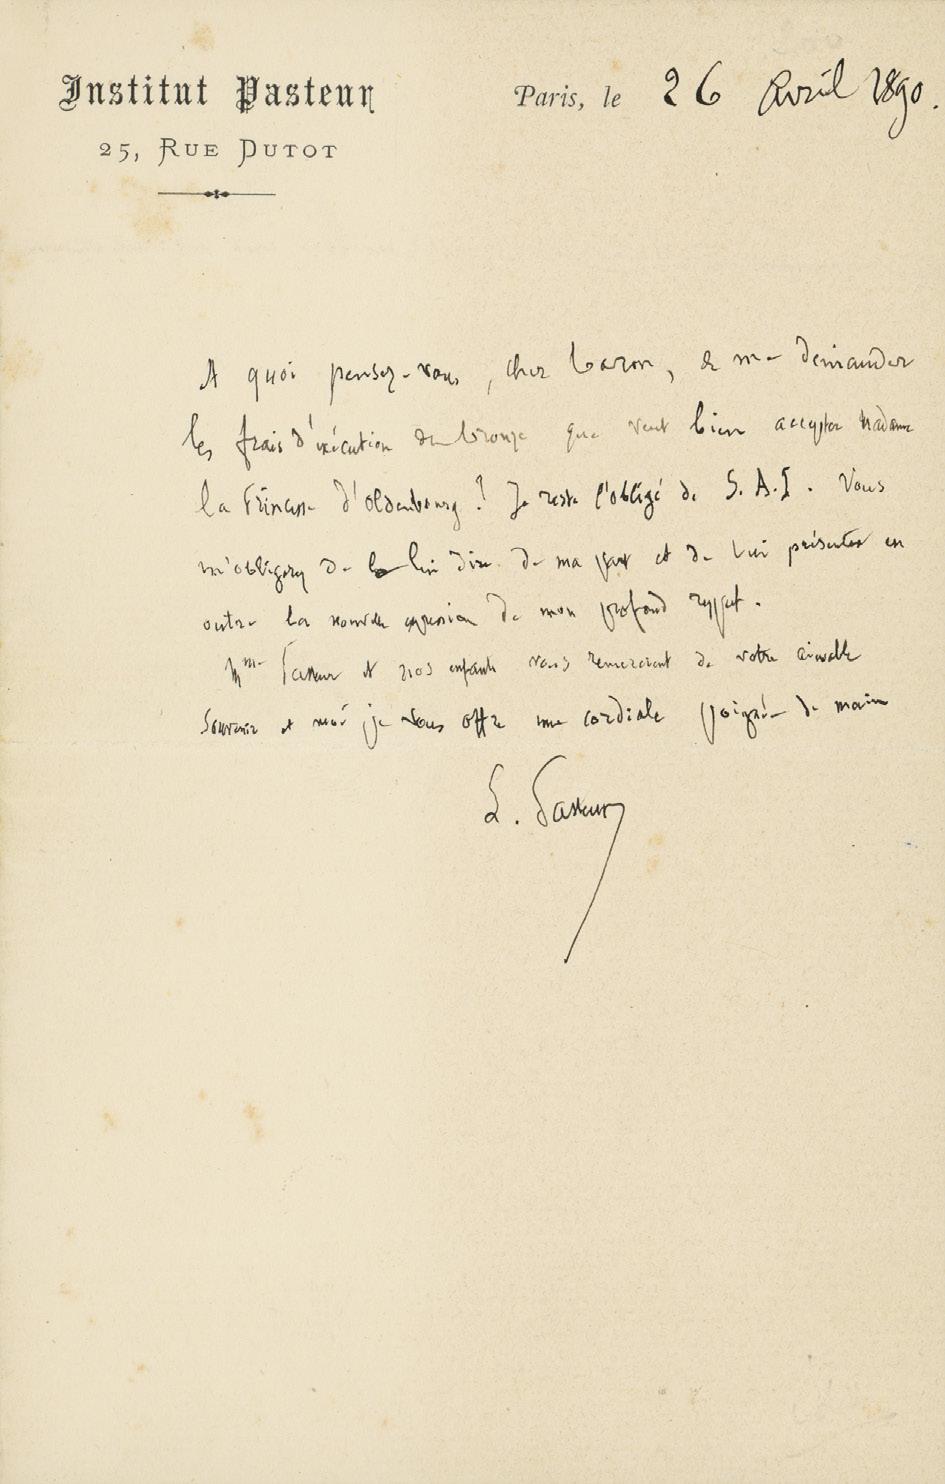 Institut Pasteur
25, RUE DUTOT
Paris, le 26 Avril 1890.
A quoi pensez-vous, cher baron, de me demander
les frais d'exécution du bronze que veut bien accepter Madame
la Princesse d'Oldenbourg ! Je reste l'obligé de S. A. I. Vous
m'obligerez de le lui dire de ma part et de lui présenter en
outre la nouvelle expression de mon profond respect.
Mme Pasteur et nos enfants vous remercient de votre aimable
souvenir et moi je vous offre une cordiale poignée de main
L. Pasteur